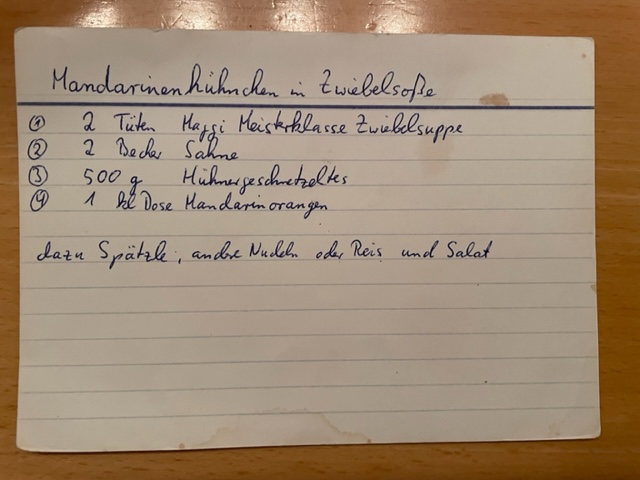 Mandarinenhühnchen in Zwiebelsoße
① 2 Tüten Maggi Meisterklasse Zwiebelsuppe
② 2 Becher Sahne
③ 500 g Hühnergeschnetzeltes
④ 1 kl Dose Mandarinorangen
dazu Spätzle, andre Nudeln oder Reis und Salat